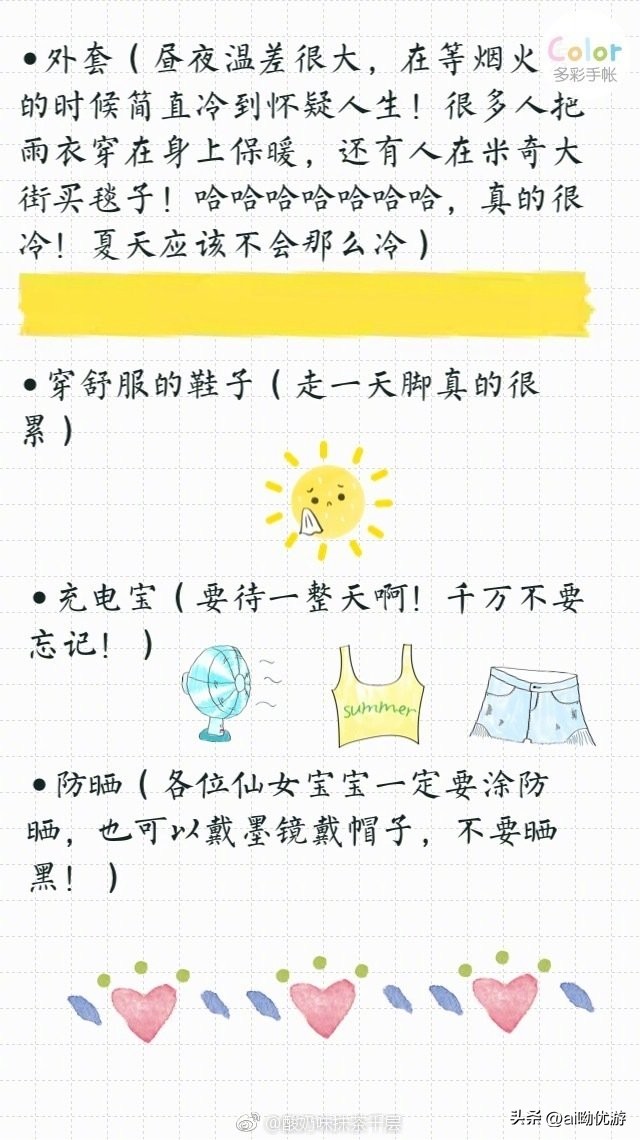 Color
多彩手帐
•外套（昼夜温差很大，在等烟火
的时候简直冷到怀疑人生！很多人把
雨衣穿在身上保暖，还有人在米奇大
街买毯子！哈哈哈哈哈哈哈，真的很
冷！夏天应该不会那么冷）
•穿舒服的鞋子（走一天脚真的很
累）
•充电宝（要待一整天啊！千万不要
忘记！）
summer
•防晒（各位仙女宝宝一定要涂防
晒，也可以戴墨镜戴帽子，不要晒
黑！）
@酸奶味抹茶千层
头条 @ai呦优游